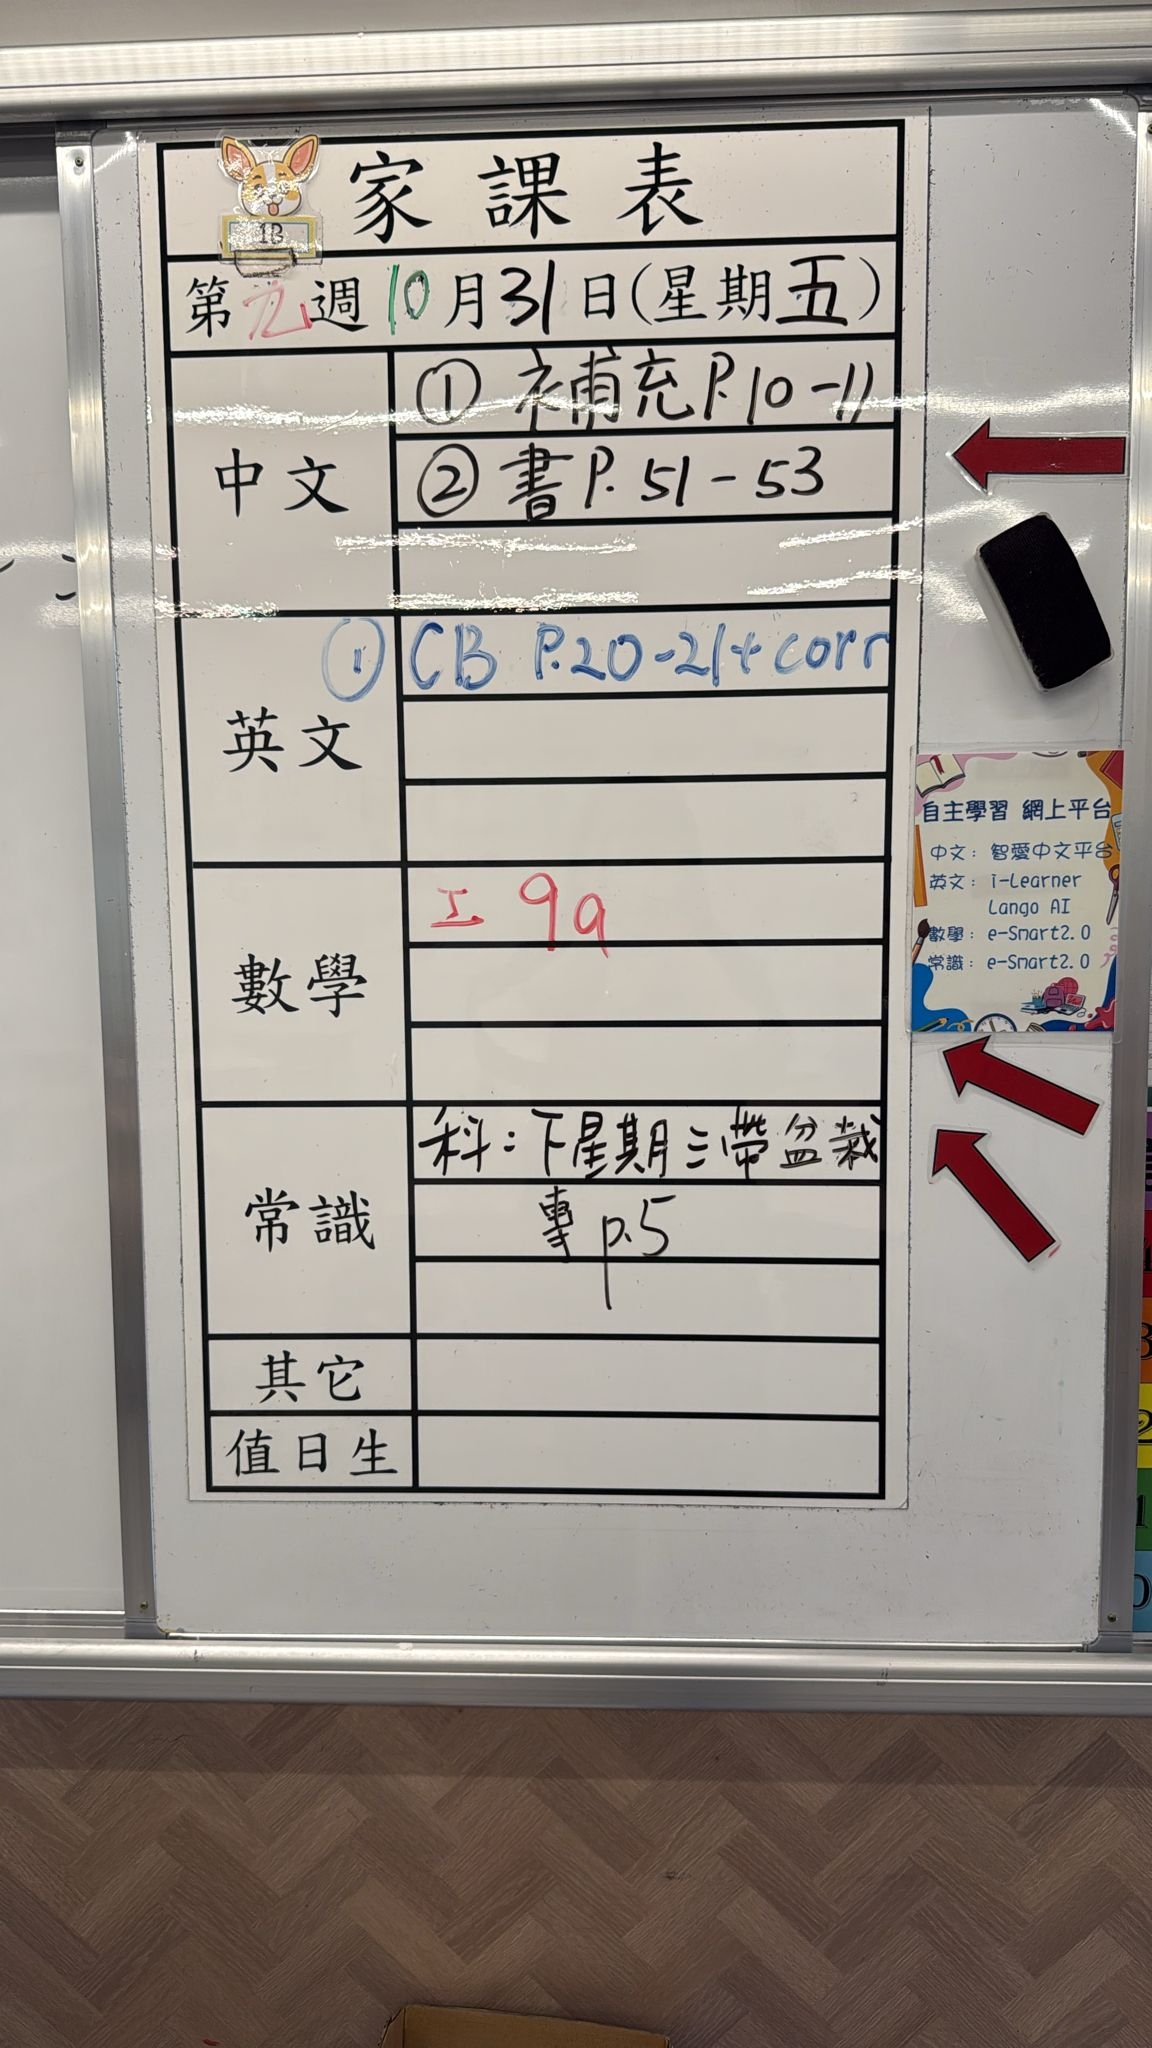 1B
家課表
第九週10月31日(星期五)
中文
① 補充 P.10-11
② 書 P.51-53
英文
① CB P.20-21+corr
數學
工 9a
常識
科:下星期三帶盆栽
專 p.5
其它
值日生
自主學習 網上平台
中文:智愛中文平台
英文:i-Learner
Lango AI
數學:e-Smart2.0
常識:e-Smart2.0
3
2
1
0